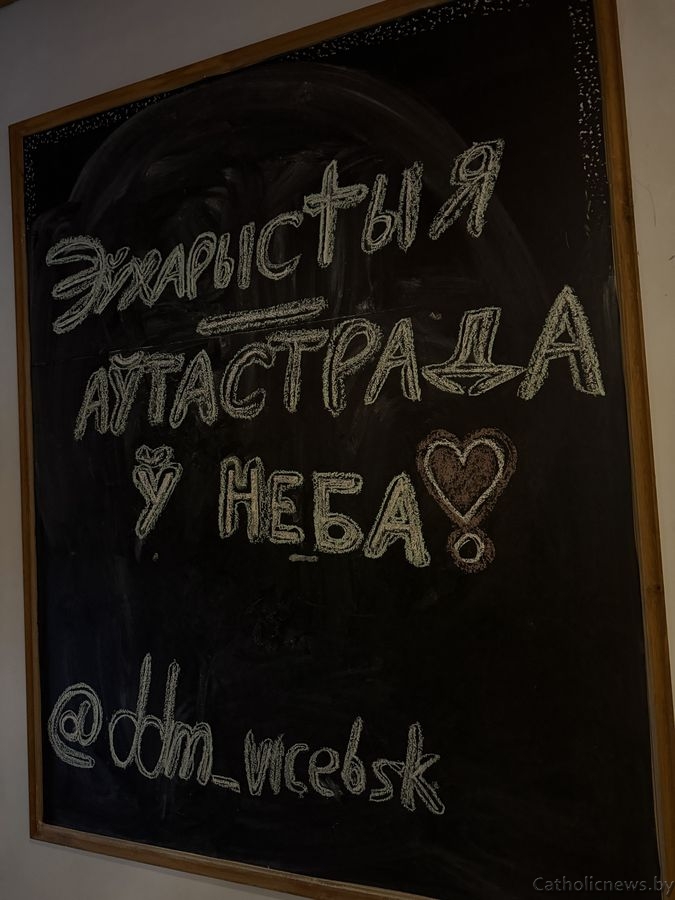 ЭЎХАРЫСТЫЯ
—
АЎТАСТРАДА
Ў НЕБА!
@ddm_vicebsk
Catholicnews.by